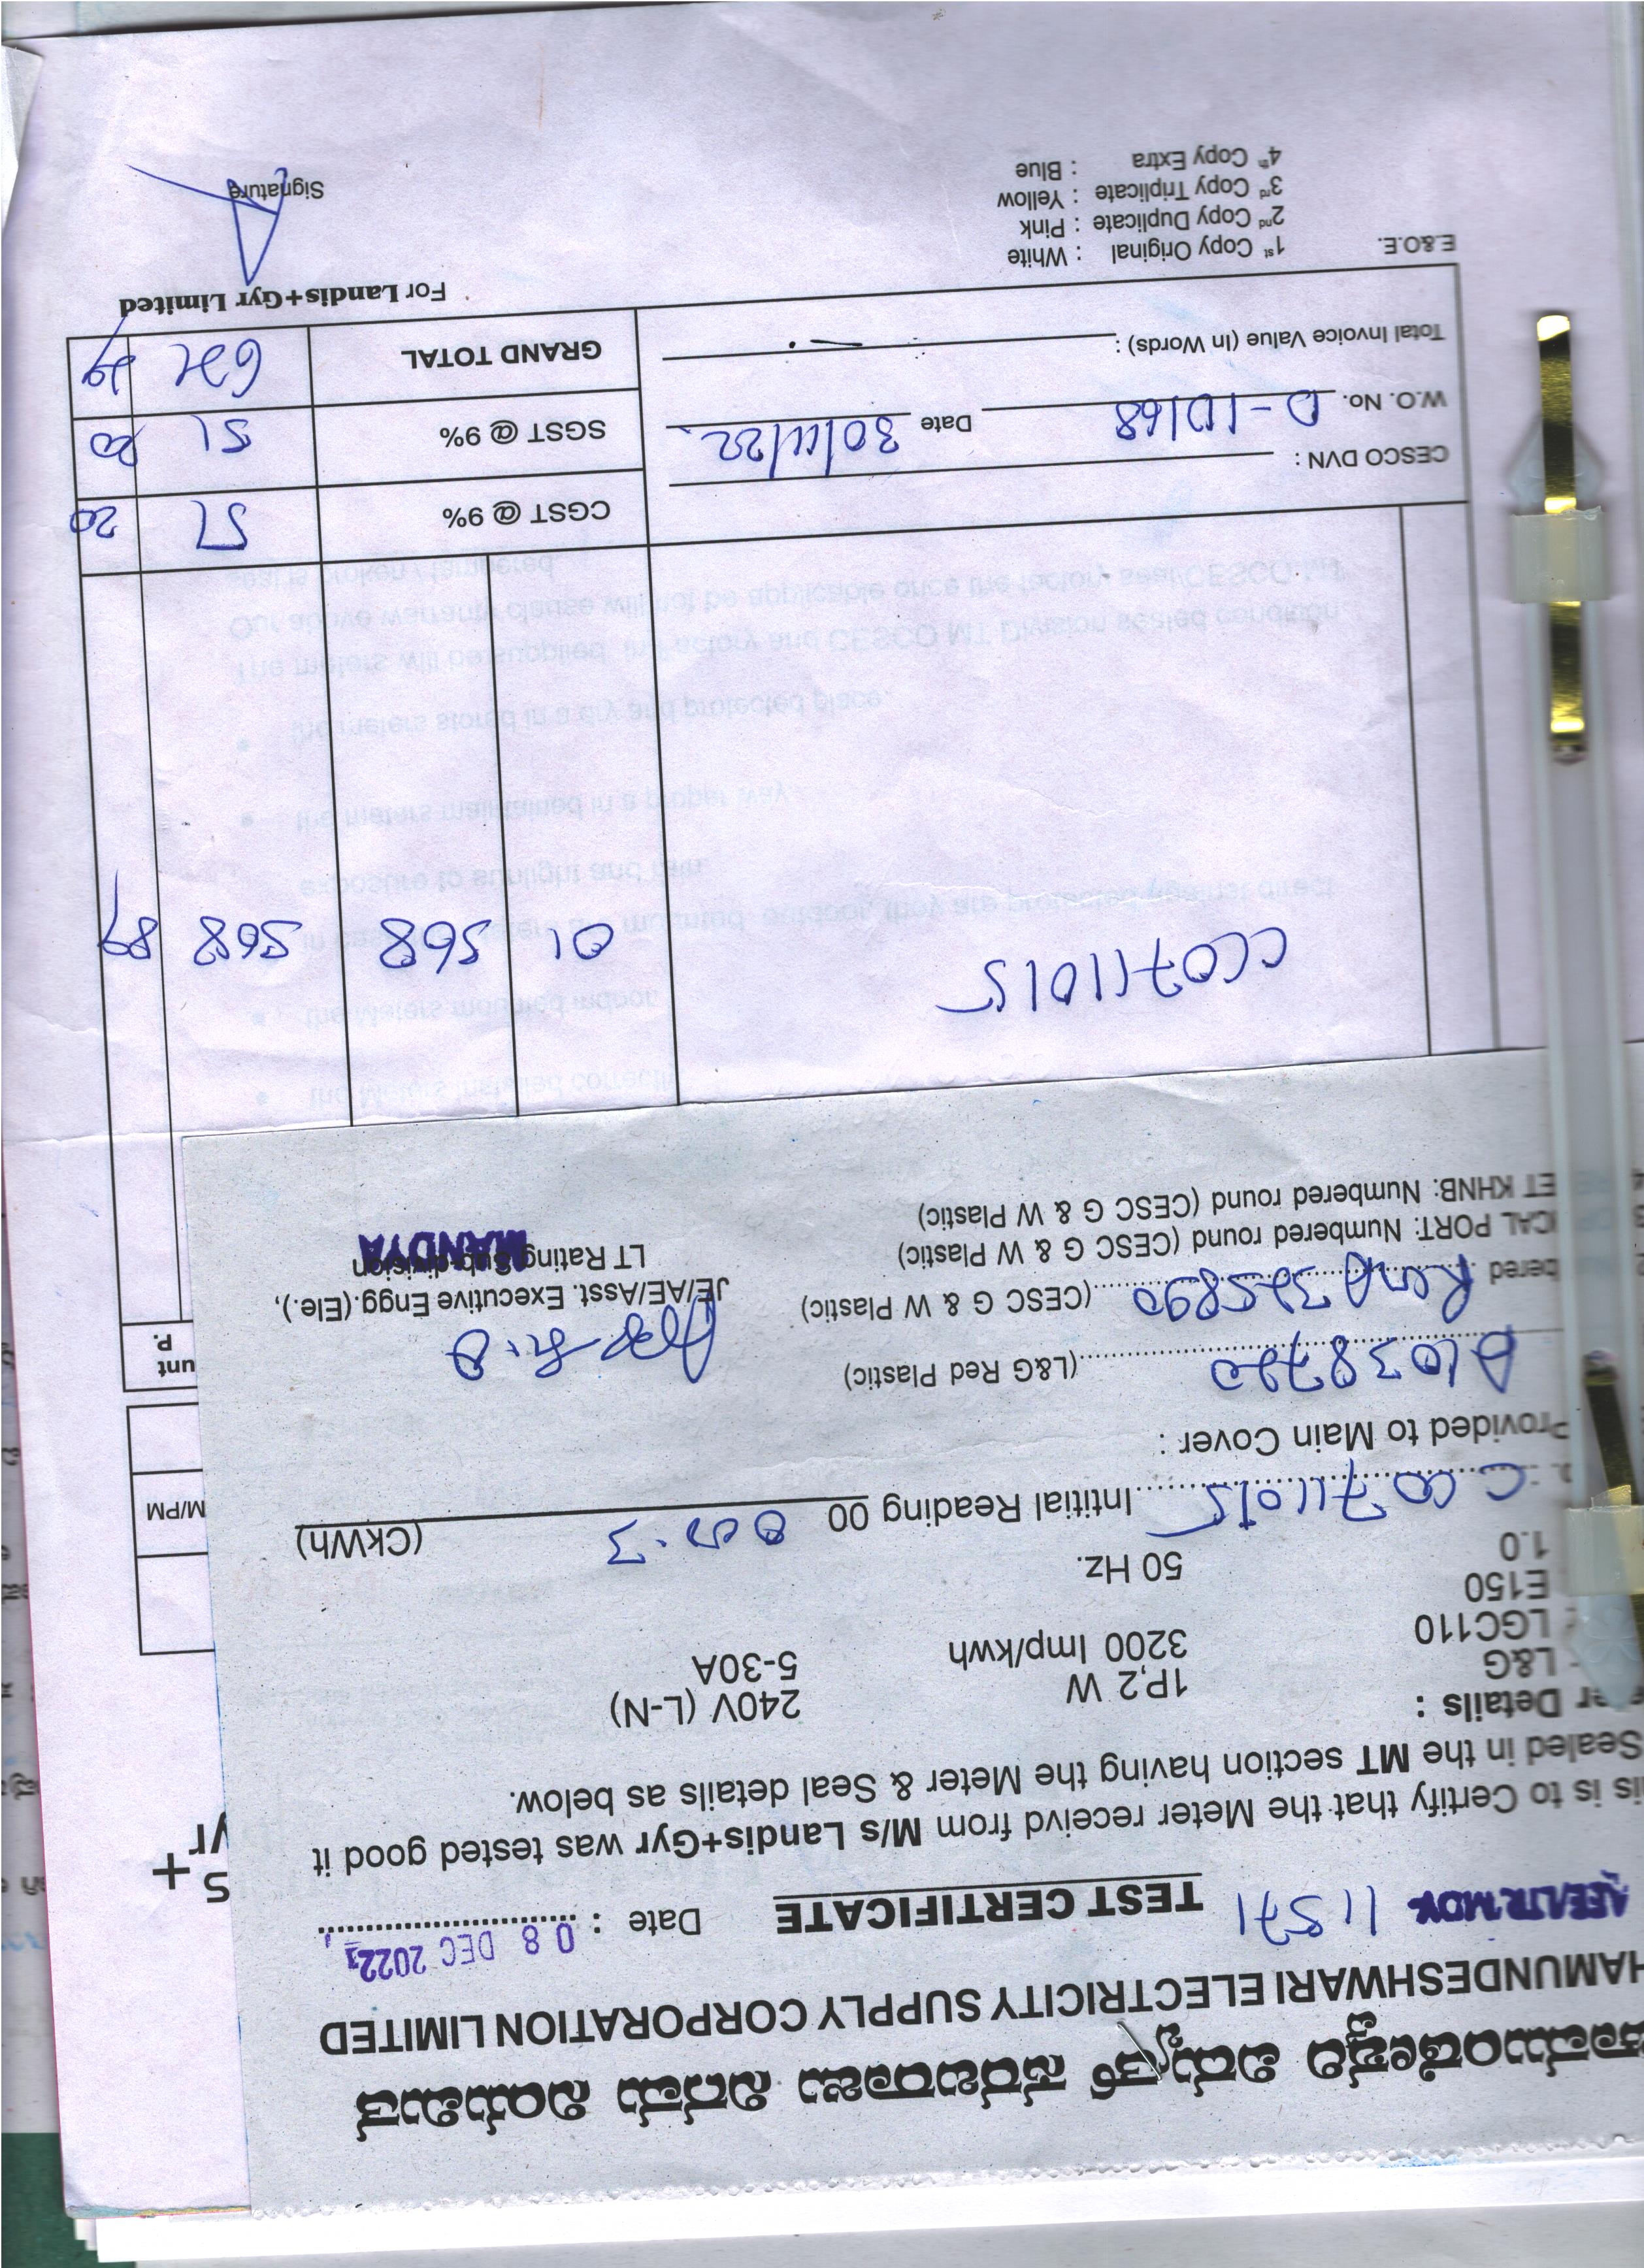 ಚಾಮುಂಡೇಶ್ವರಿ ವಿದ್ಯುತ್ ಸರಬರಾಜು ನಿಗಮ ನಿಯಮಿತ
HAMUNDESHWARI ELECTRICITY SUPPLY CORPORATION LIMITED
AEE/LTR/MDY 11571 TEST CERTIFICATE Date : 08 DEC 2022
is is to Certify that the Meter receivd from M/s Landis+Gyr was tested good it
Sealed in the MT section having the Meter & Seal details as below.
er Details :
L&G 1P,2 W 240V (L-N)
LGC110 3200 Imp/kwh 5-30A
E150
1.0 50 Hz.
CC0711015 Intitial Reading 00 000.3 (CkWh)
Provided to Main Cover :
(L&G Red Plastic)
bered (CESC G & W Plastic)
ICAL PORT: Numbered round (CESC G & W Plastic)
ET KHNB: Numbered round (CESC G & W Plastic)
JE/AE/Asst. Executive Engg.(Ele.),
LT Rating Sub-division
MANDYA
s+
yr
M/PM
unt
P.
CC0711015 01 568 568 89
CGST @ 9% 51 20
CESCO DVN :
SGST @ 9% 51 20
W.O. No. D-1D/68 Date 30/11/22
GRAND TOTAL
Total Invoice Value (In Words) :
For Landis+Gyr Limited
E.&O.E.
1st Copy Original : White
2nd Copy Duplicate : Pink
3rd Copy Triplicate : Yellow
4th Copy Extra : Blue
Signature